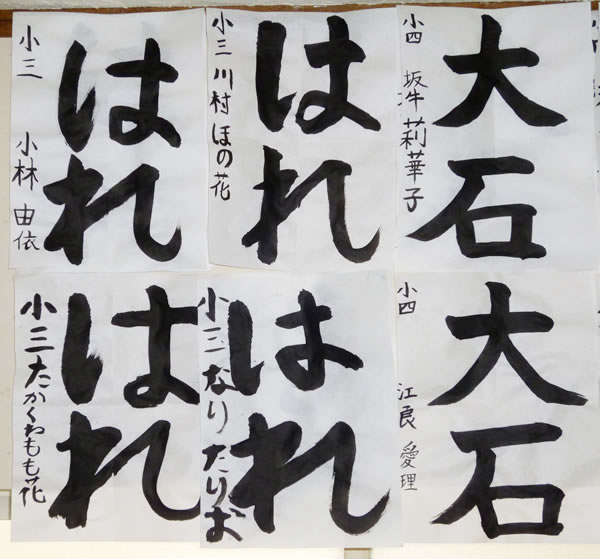 はれ
小三 小林由依
はれ
小三 川村ほの花
大石
小四 坂牛莉華子
はれ
小三 たかくわもも花
はれ
小三
大石
小四 江良愛理